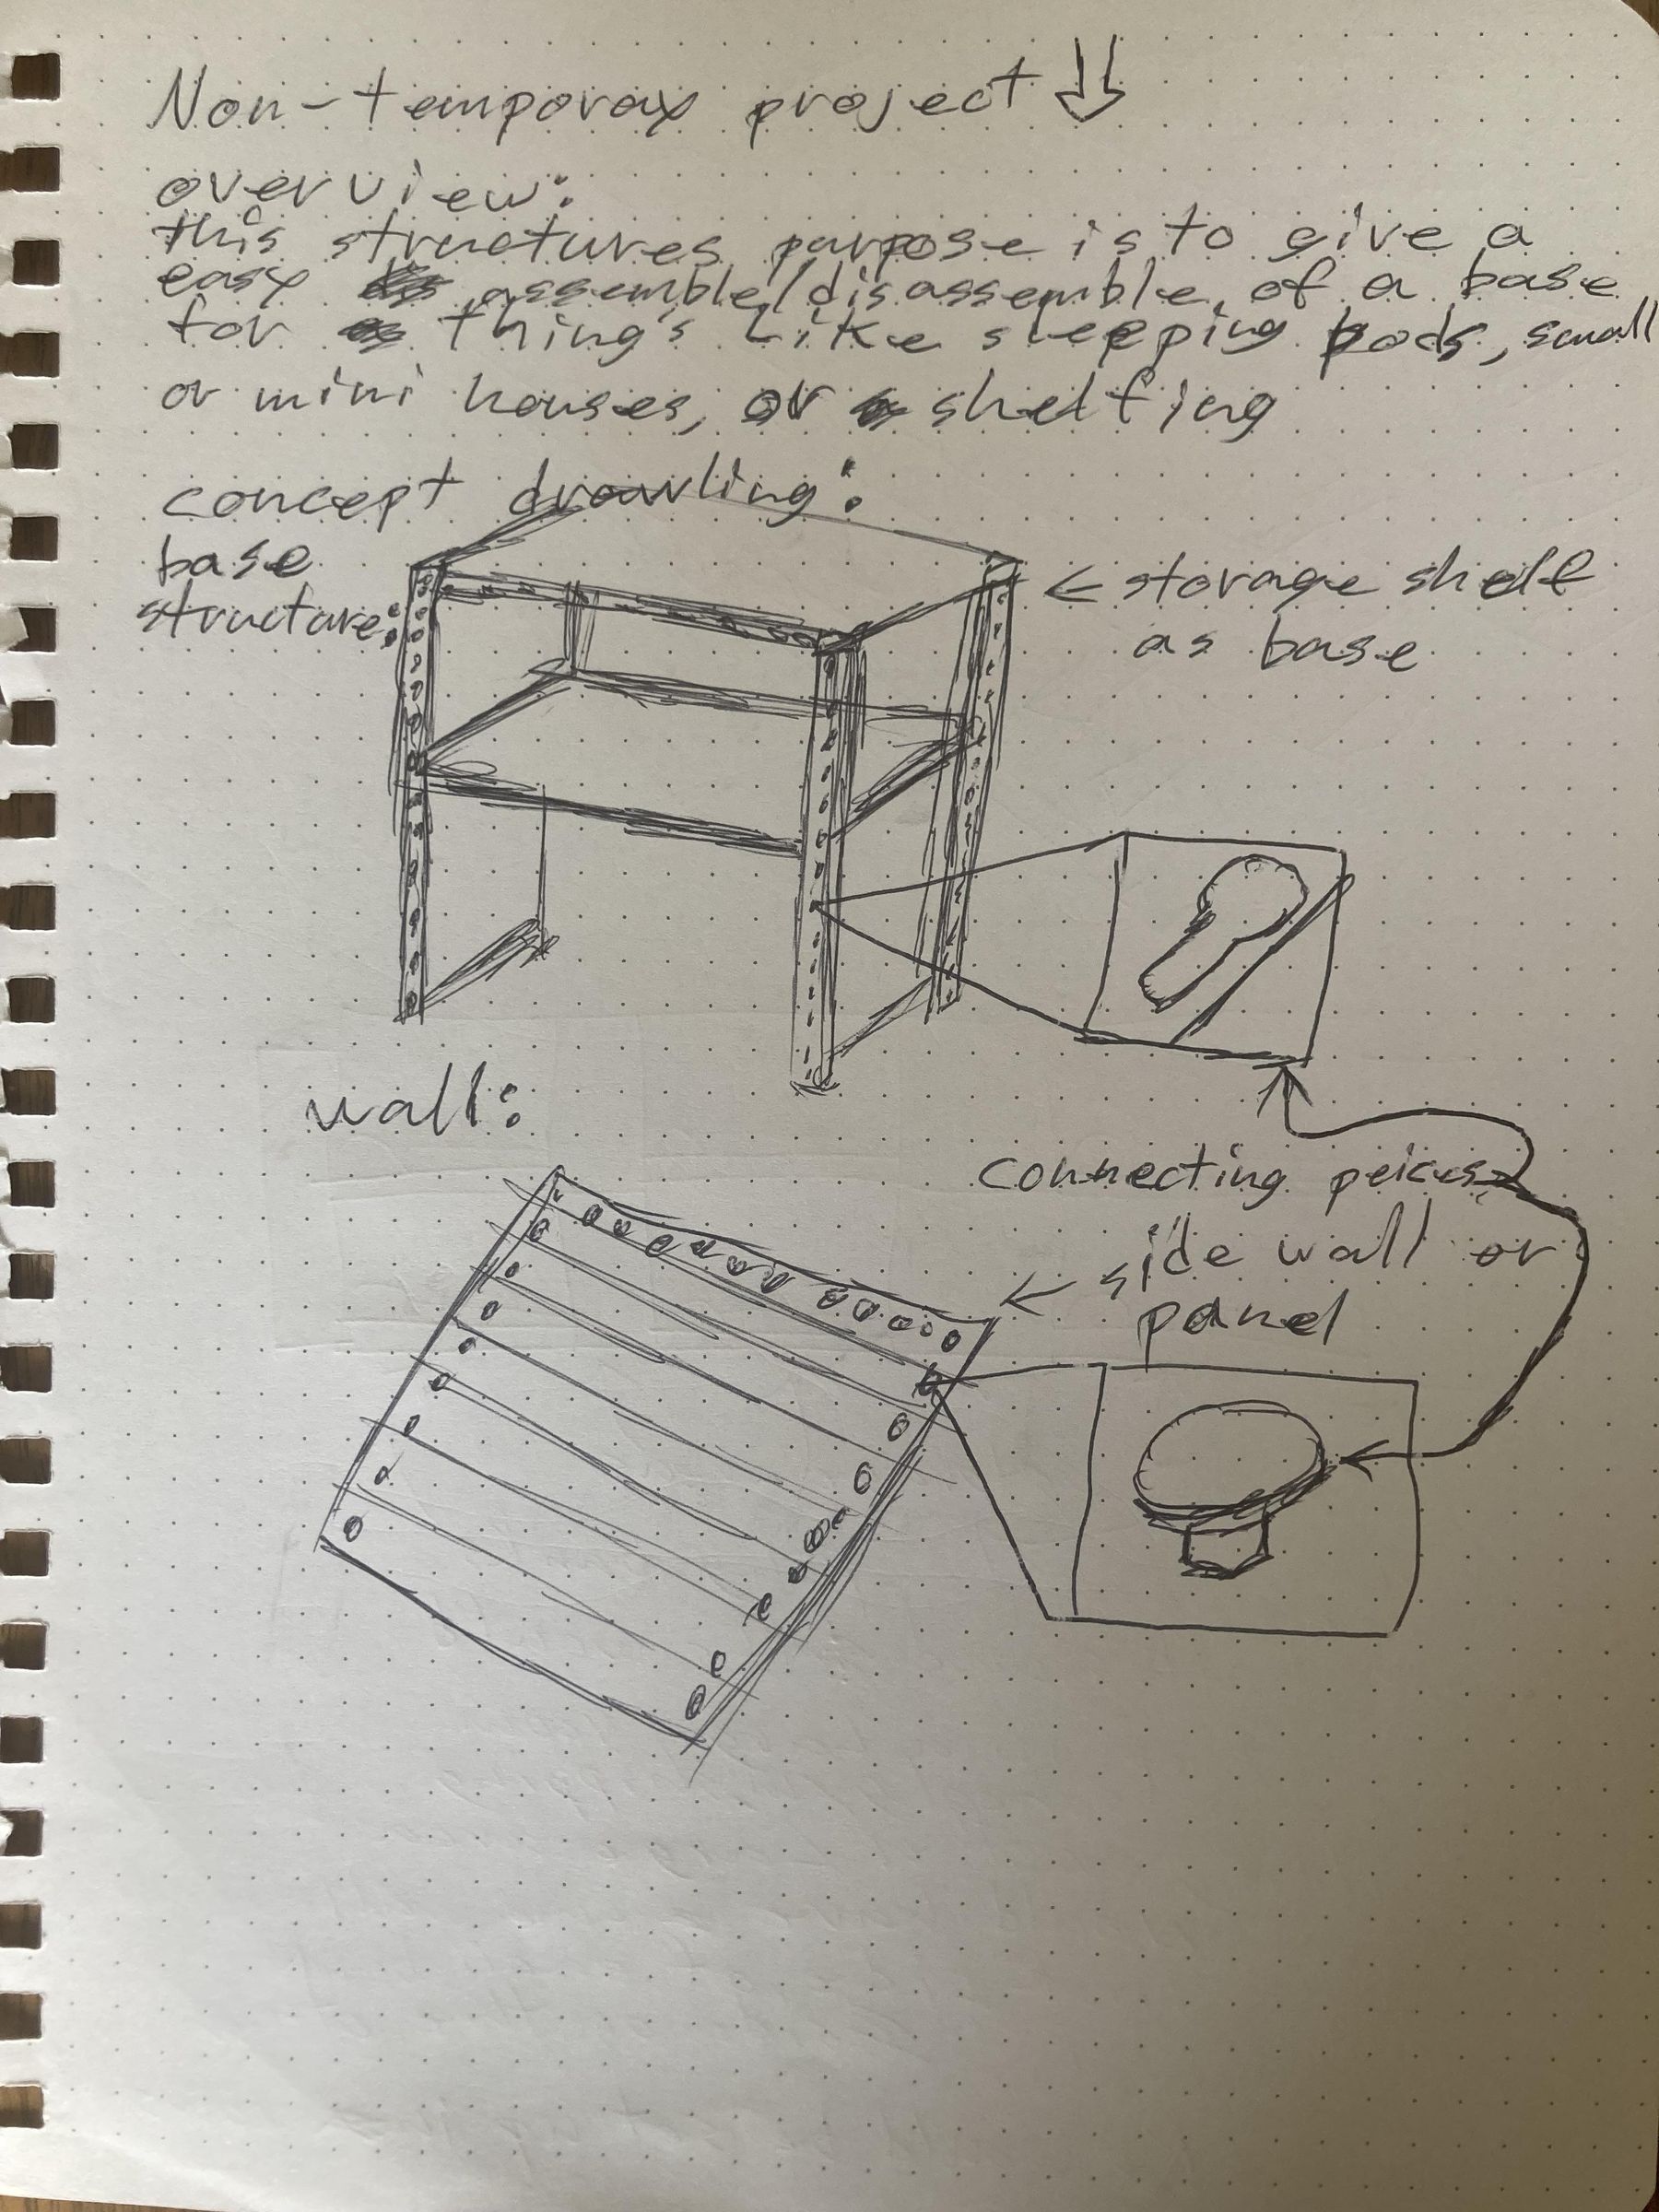 Non-temporay project
overview:
this structures purpose is to give a
easy assemble/disassemble, of a base
for thing's Like sleeping pods, small
or mini houses, or shelfing
concept drawling:
base
structure:
← storage shelf
as base
wall:
connecting peices
← side wall or
panel